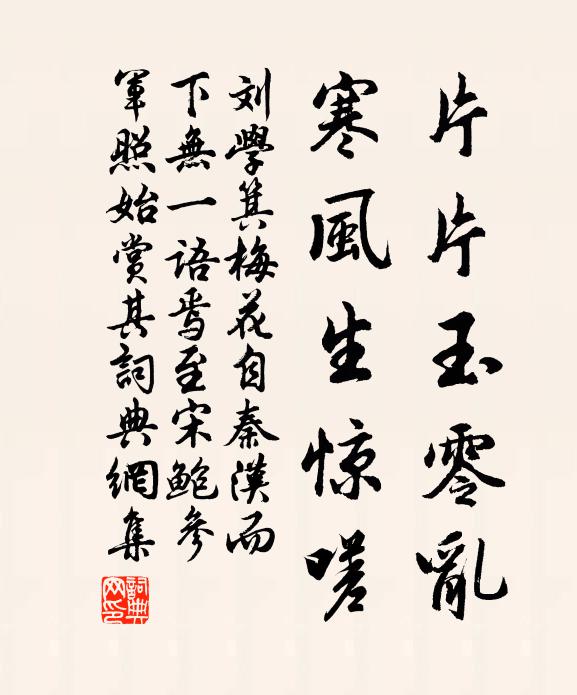 片片玉零亂
寒風生惊嗟
刘學箕梅花自秦漢而
下無一語焉至宋鮑參
軍照始賞其詞典網集
詞典網印